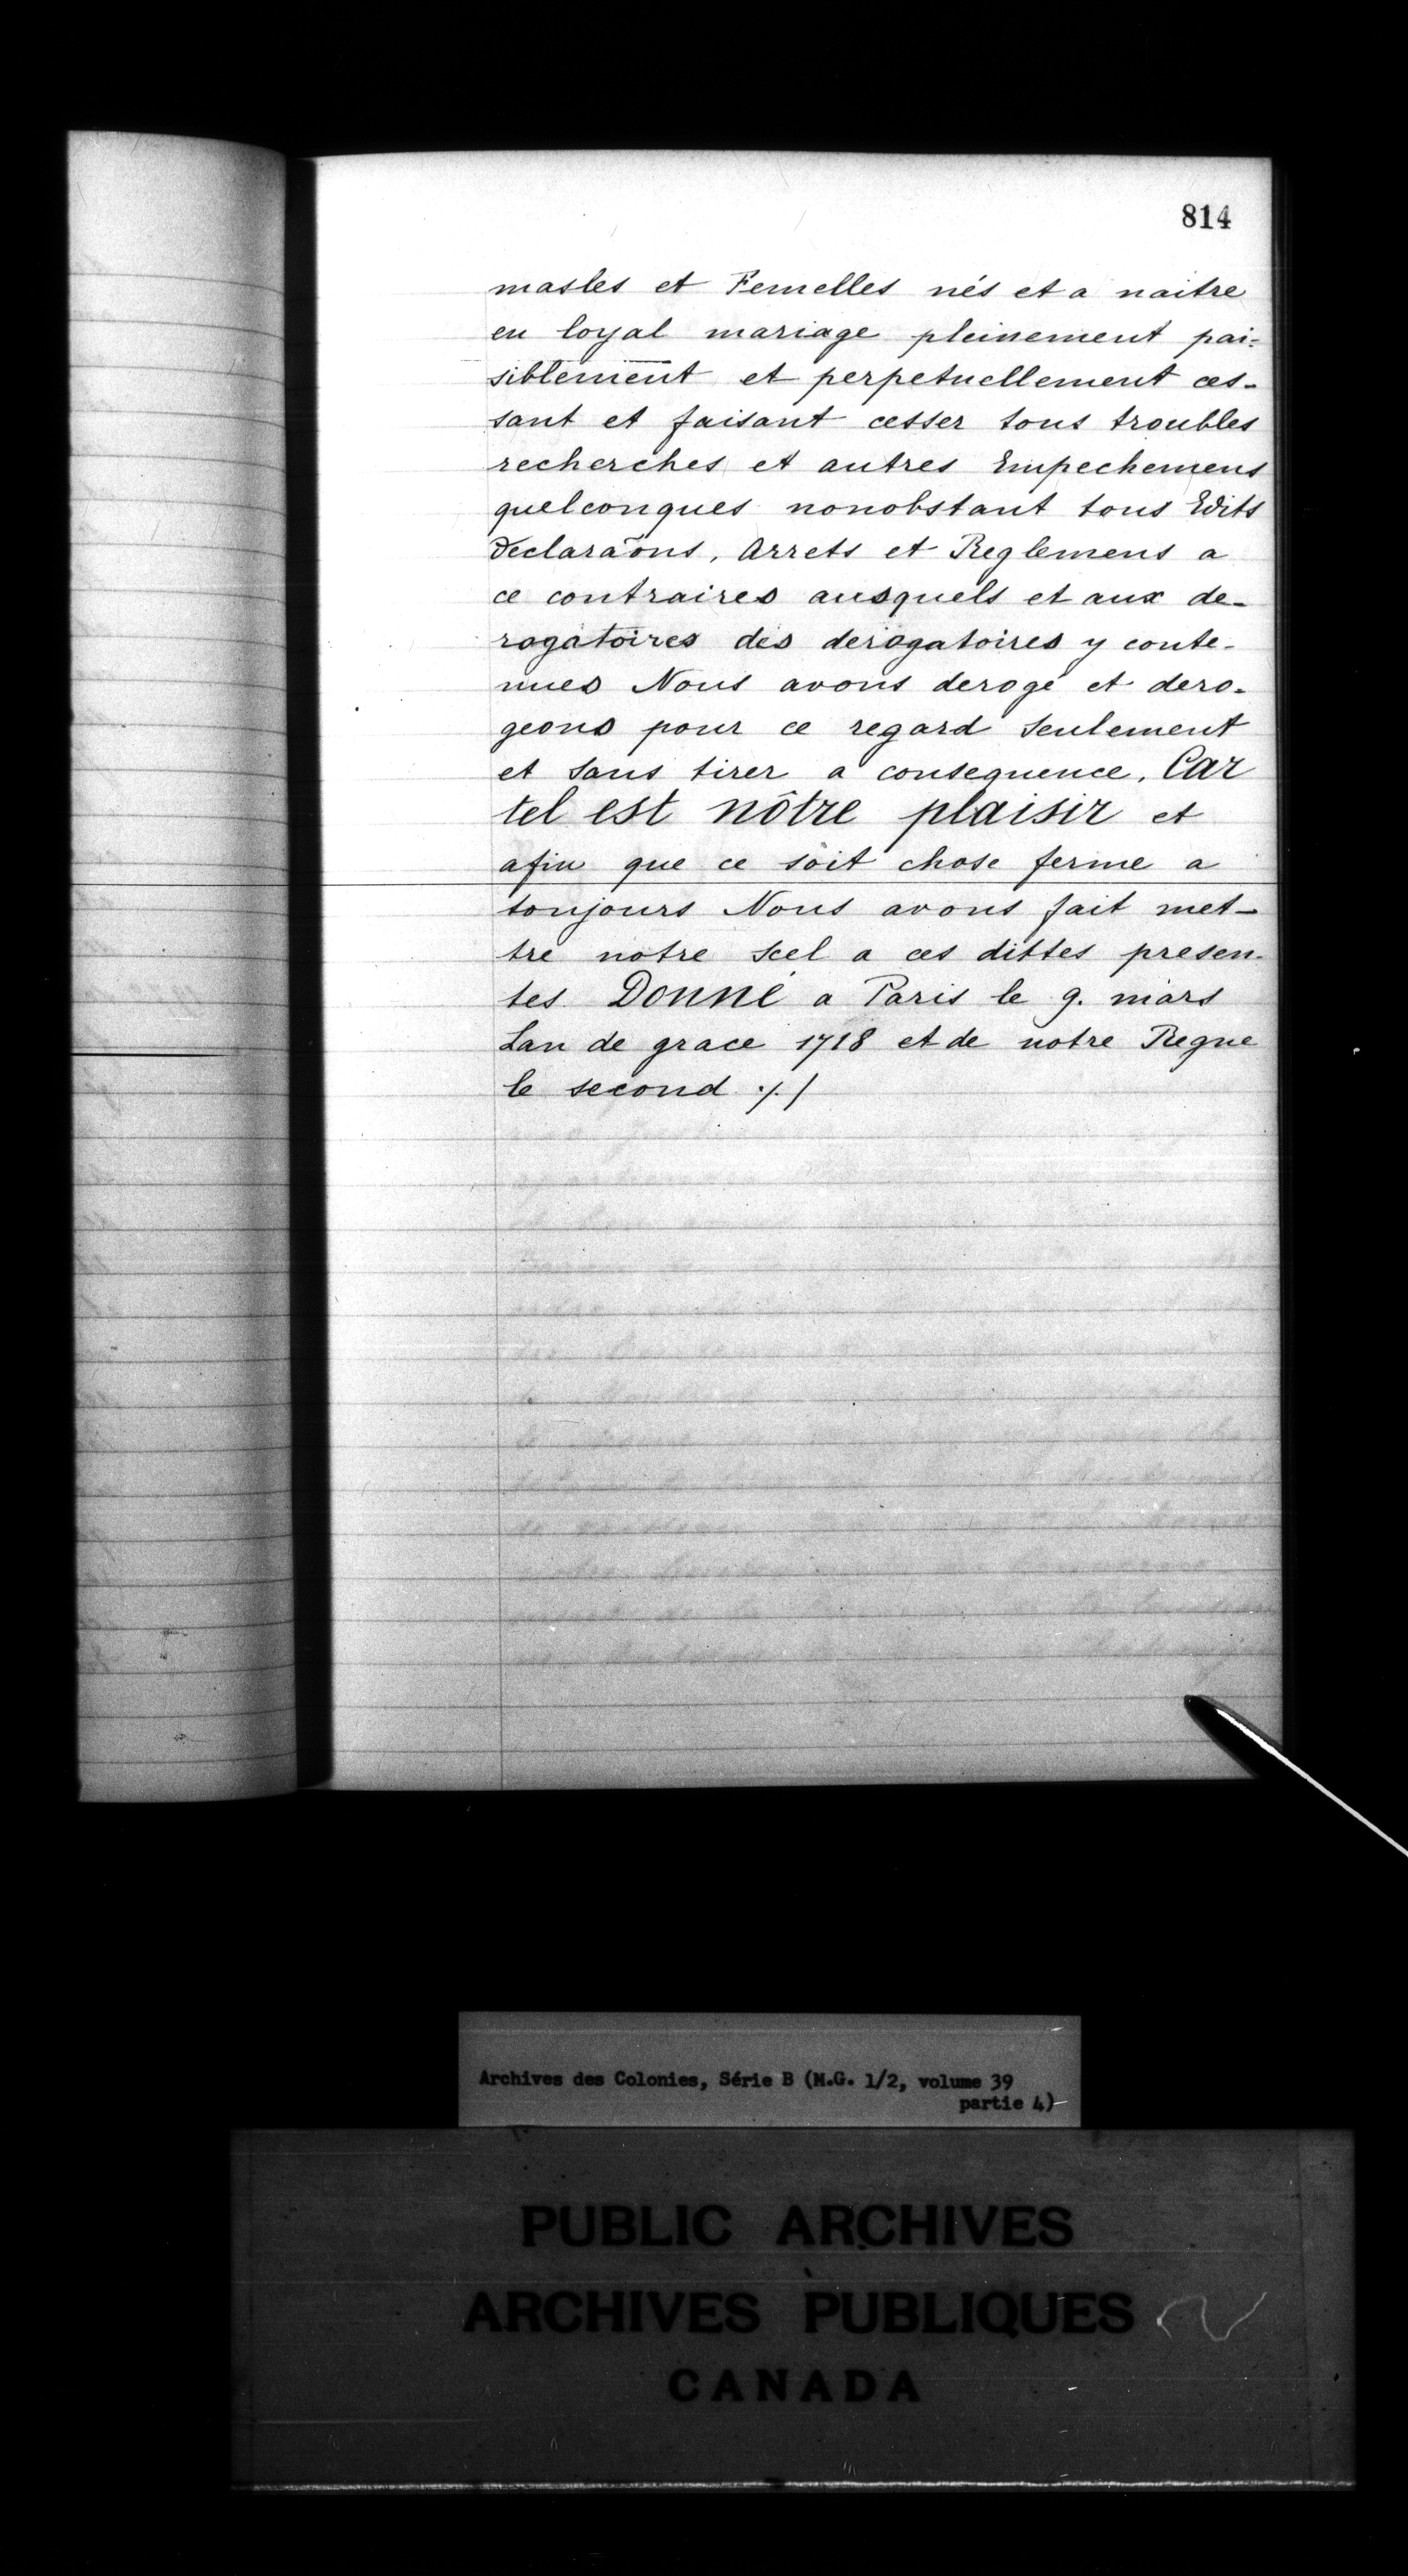 814
masles et Femelles nés et a naitre
en loyal mariage pleinement pai-
siblement et perpetuellement ces-
sant et faisant cesser tous troubles
recherches et autres Empechemens
quelconques nonobstant tous Edits
Declaraõns, Arrets et Reglemens a
ce contraires ausquels et aux de-
rogatoires des derogatoires y conte-
nues Nous avons derogé et dero-
geons pour ce regard seulement
et sans tirer a consequence, Car
tel est nôtre plaisir et
afin que ce soit chose ferme a
toujours Nous avons fait met-
tre notre scel a ces dittes presen-
tes Donné a Paris le 9. mars
Lan de grace 1718 et de notre Regne
le second ·/· /
Archives des Colonies, Série B (M.G. 1/2, volume 39
partie 4)
PUBLIC ARCHIVES
ARCHIVES PUBLIQUES
CANADA